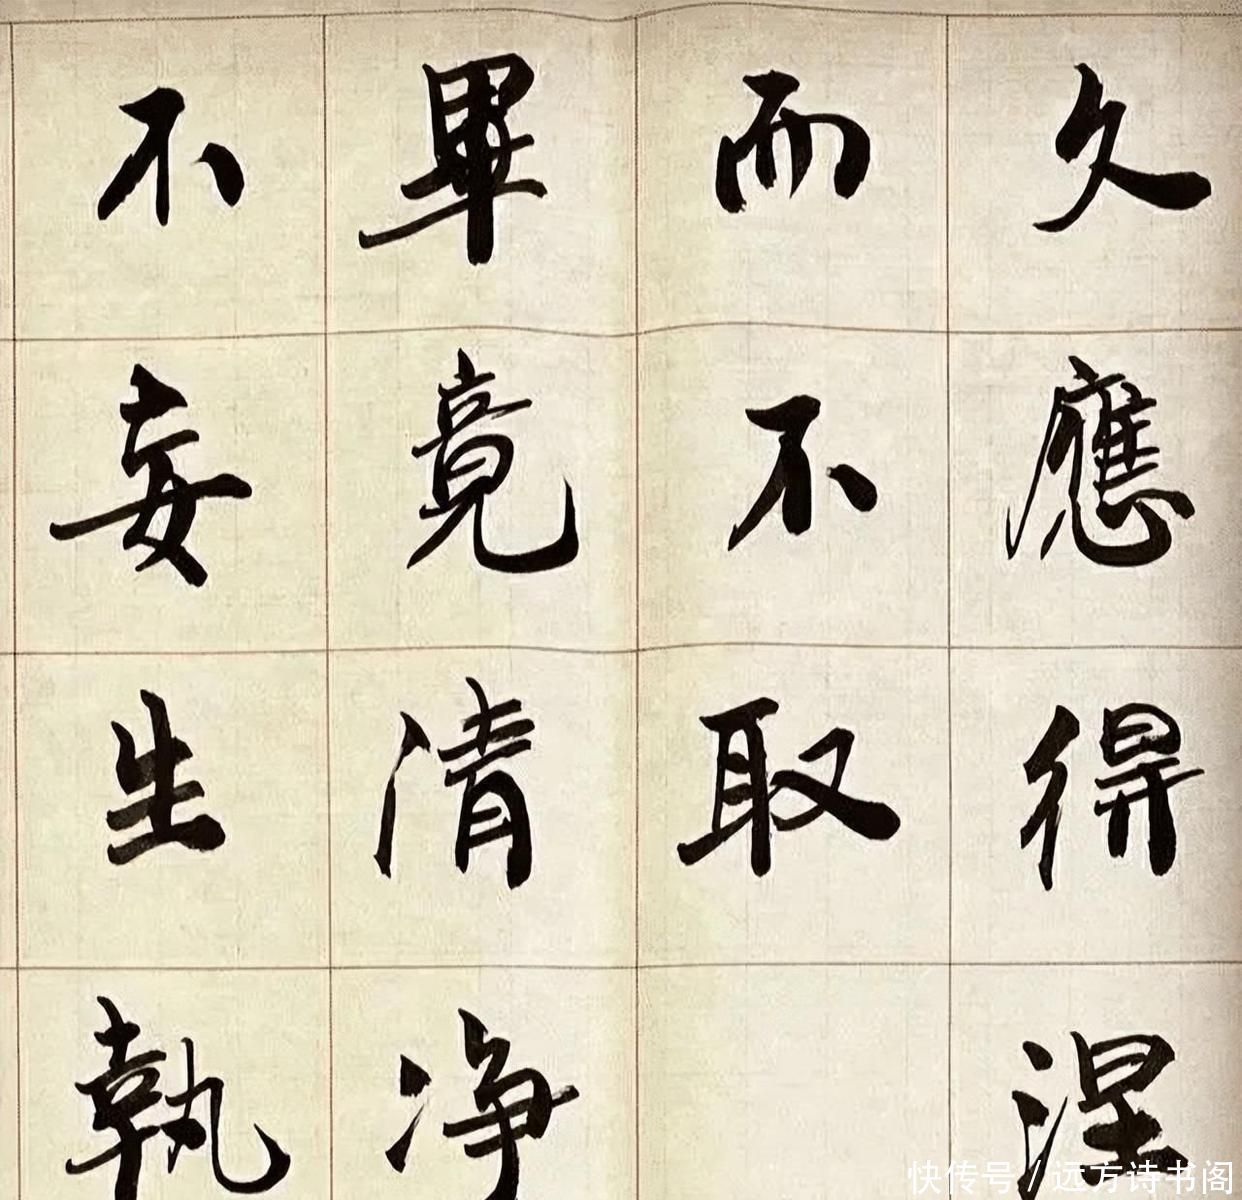 久應得涅
而不取
畢竟清净
不妄生執
快传号/远方诗书阁